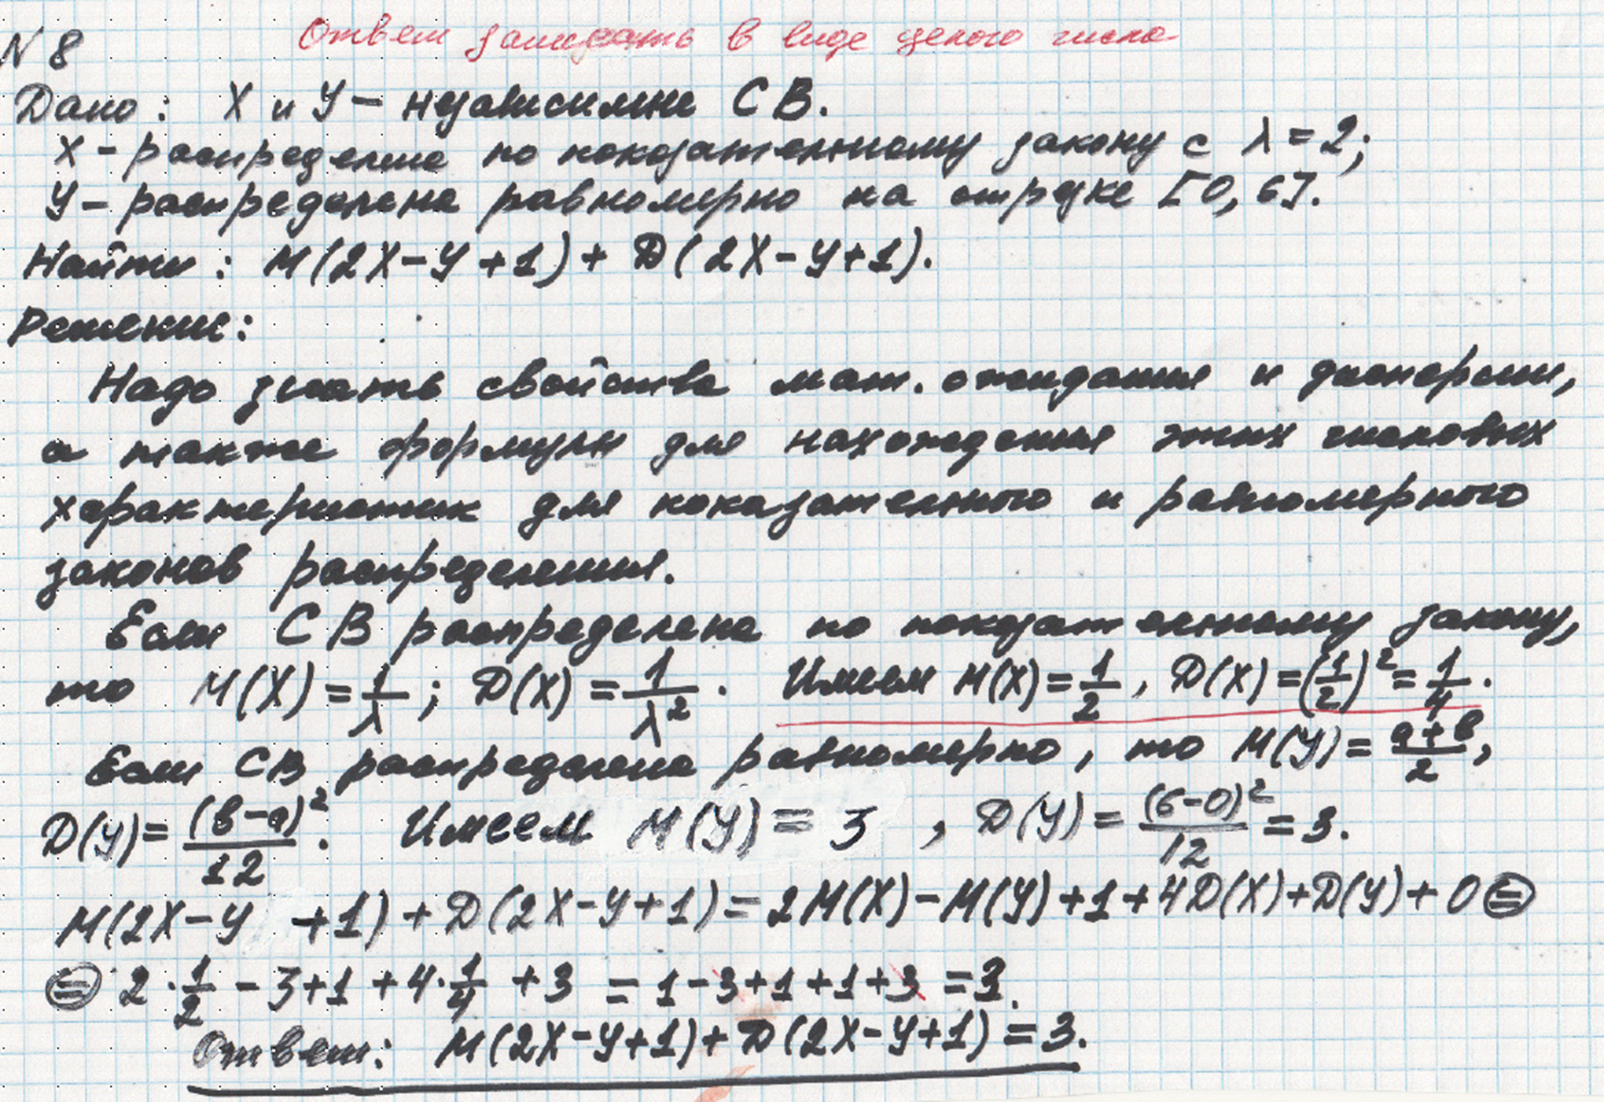 Ответ записать в виде целого числа
N 8
Дано: X и Y – независимые СВ.
X – распределена по показательному закону с λ = 2;
Y – распределена равномерно на отрезке [0, 6].
Найти: M(2X – Y + 1) + D(2X – Y + 1).
Решение:
Надо знать свойства мат. ожидания и дисперсии,
а также формулы для нахождения этих числовых
характеристик для показательного и равномерного
законов распределения.
Если СВ распределена по показательному закону,
то M(X) = 1/λ; D(X) = 1/λ². Имеем M(X) = 1/2, D(X) = (1/2)² = 1/4.
Если СВ распределена равномерно, то M(Y) = (a+b)/2,
D(Y) = (b–a)²/12. Имеем M(Y) = 3, D(Y) = (6–0)²/12 = 3.
M(2X – Y + 1) + D(2X – Y + 1) = 2M(X) – M(Y) + 1 + 4D(X) + D(Y) + 0 ⊜
⊜ 2 · 1/2 – 3 + 1 + 4 · 1/4 + 3 = 1 – 3 + 1 + 1 + 3 = 3.
Ответ: M(2X – Y + 1) + D(2X – Y + 1) = 3.